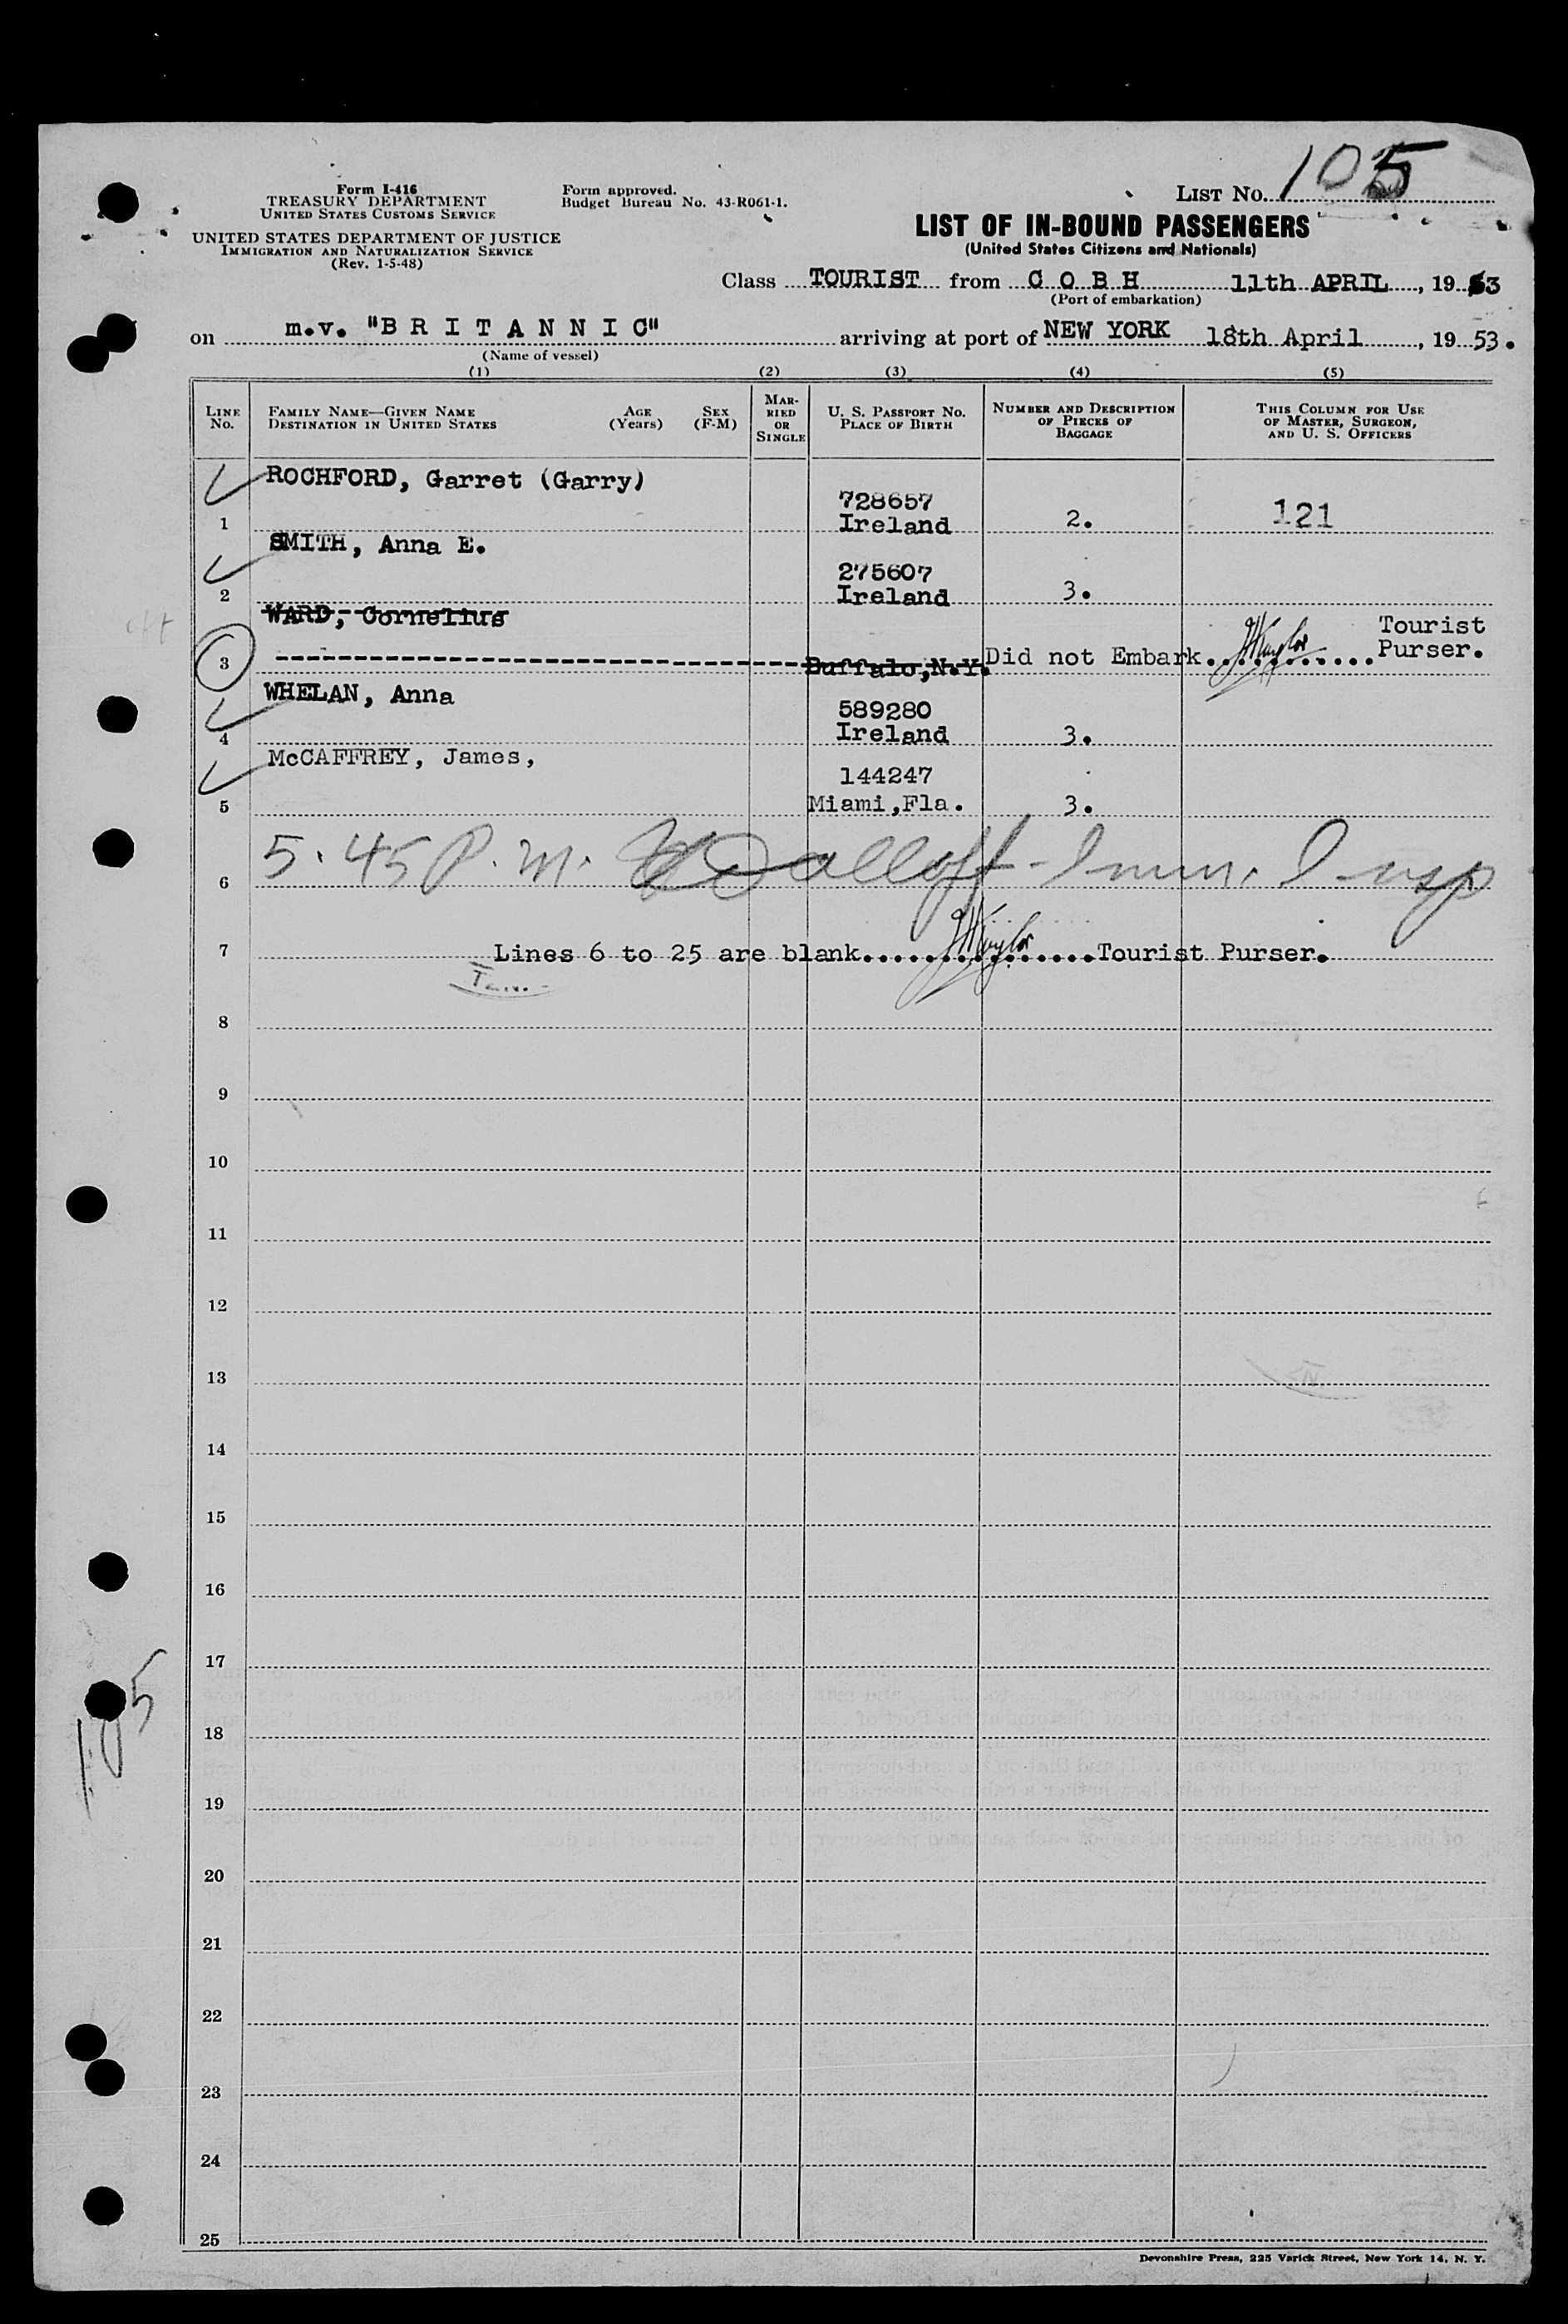 LIST No. 105
Form I-416
TREASURY DEPARTMENT
UNITED STATES CUSTOMS SERVICE
Form approved.
Budget Bureau No. 43-R061-1.
UNITED STATES DEPARTMENT OF JUSTICE
IMMIGRATION AND NATURALIZATION SERVICE
(Rev. 1-5-48)
LIST OF IN-BOUND PASSENGERS
(United States Citizens and Nationals)
Class TOURIST from C O B H 11th APRIL, 1953
(Port of embarkation)
on m.v. "B R I T A N N I C" arriving at port of NEW YORK 18th April, 19 53.
(Name of vessel)
(1) (2) (3) (4) (5)
LINE No.
FAMILY NAME—GIVEN NAME
DESTINATION IN UNITED STATES
AGE (Years)
SEX (F-M)
MARRIED OR SINGLE
U. S. PASSPORT No.
PLACE OF BIRTH
NUMBER AND DESCRIPTION OF PIECES OF BAGGAGE
THIS COLUMN FOR USE OF MASTER, SURGEON, AND U. S. OFFICERS
ROCHFORD, Garret (Garry)
728657
1 Ireland 2. 121
SMITH, Anna E.
275607
2 Ireland 3.
WARD, Cornelius
3 Buffalo,N.Y. Did not Embark. Tourist Purser.
WHELAN, Anna
589280
4 Ireland 3.
McCAFFREY, James,
144247
5 Miami,Fla. 3.
6 5.45 P.M. Imm. Insp
7 Lines 6 to 25 are blank Tourist Purser.
8
9
10
11
12
13
14
15
16
17
105
18
19
20
21
22
23
24
25
Devonshire Press, 225 Varick Street, New York 14, N. Y.